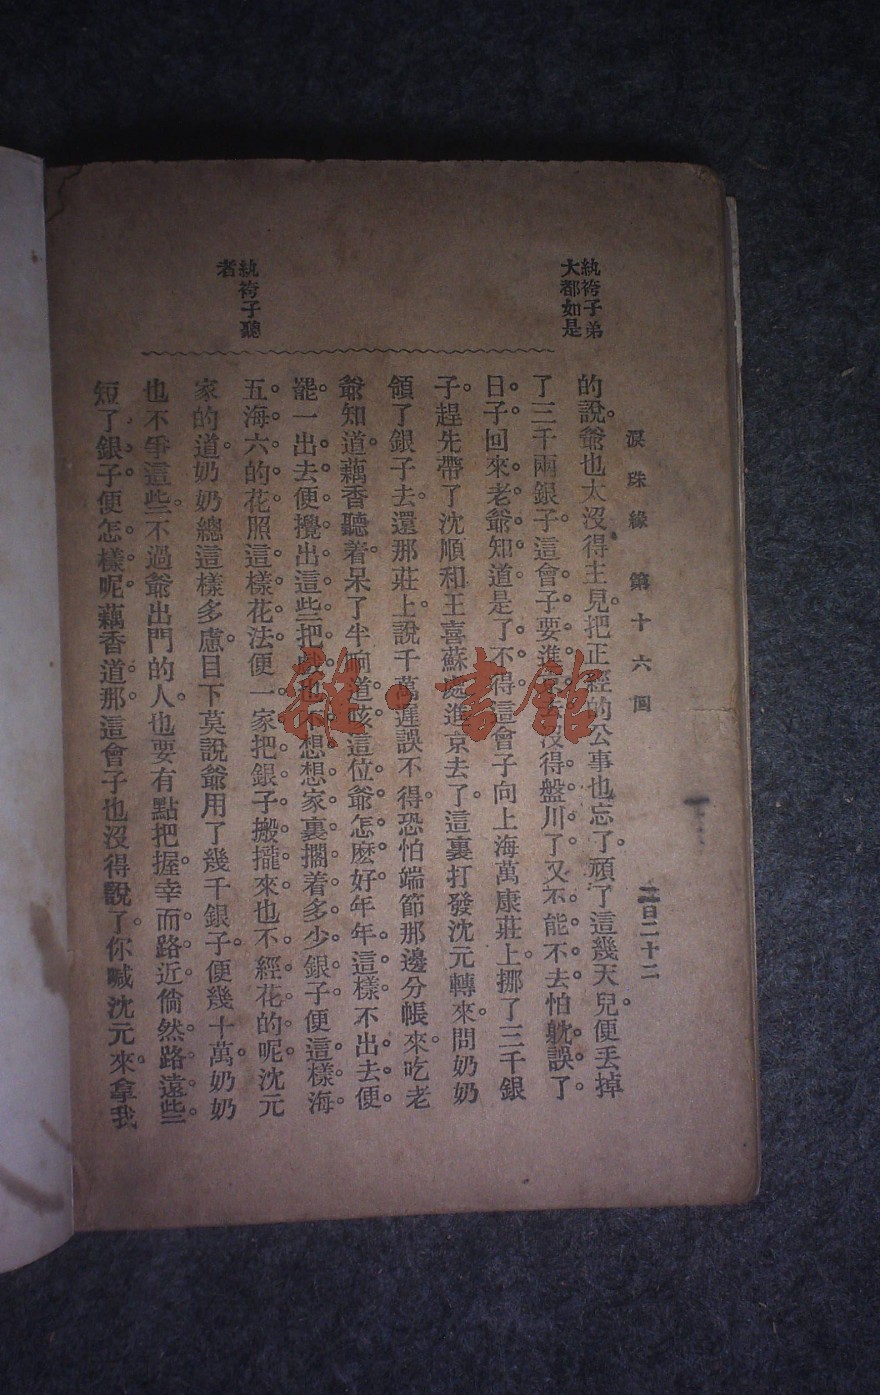 淚珠緣　第十六回
二百二十二
紈袴子弟
大都如是
紈袴子聽
者
的說。爺也太沒得主見。把正經的公事也忘了。頑了這幾天兒。便丟掉
了三千兩銀子。這會子要進京沒得盤川了。又不能不去。怕躭誤了。
日子。回來老爺知道。是了不得。這會子向上海萬康莊上。挪了三千銀
子。趕先帶了沈順和王喜蘇處進京去了。這裏打發沈元轉來。問奶奶
領了銀子去。還那莊上。說千萬遲誤不得。恐怕端節那邊分帳來。吃老
爺知道。藕香聽着。呆了半晌道。咳。這位爺怎麽好。年年這樣。不出去便
罷。一出去便攪出這些把戲。也不想想家裏擱着多少銀子。便這樣海
五海六的花。照這樣花法。便一家把銀子搬攏來。也不經花的呢。沈元
家的道。奶奶總這樣多慮。目下莫說爺用了幾千銀子。便幾十萬。奶奶
也不爭這些。不過爺出門的人。也要有點把握。幸而路近。倘然路遠些。
短了銀子。便怎樣呢。藕香道。那這會子也沒得說了。你喊沈元來。拿我
雜·書館